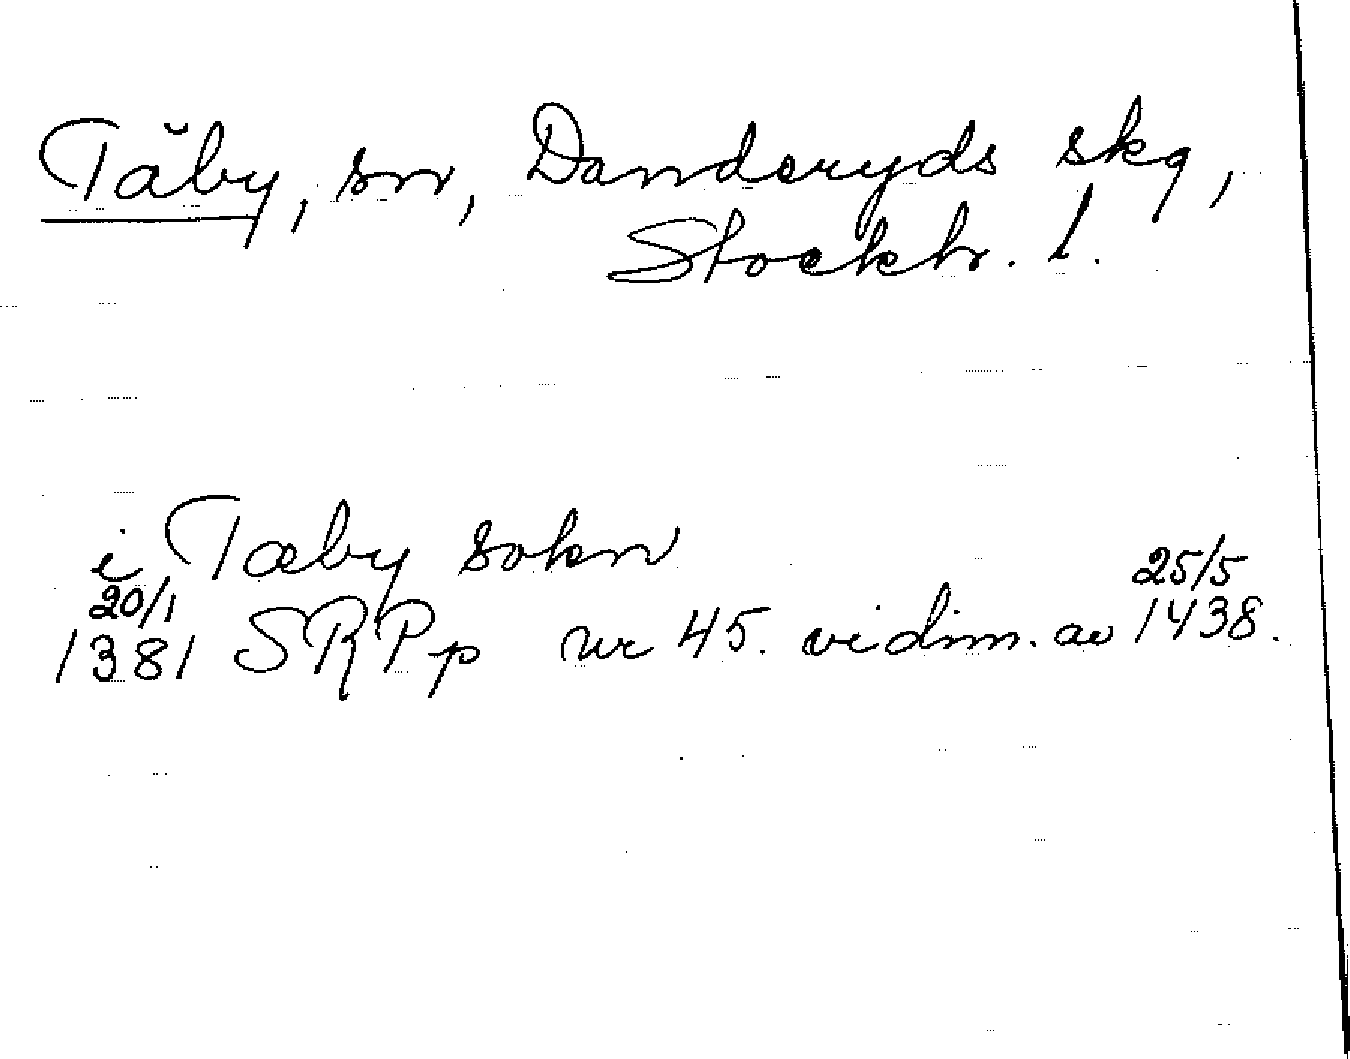 Täby, sn, Danderyds skg,
Stockh. l.
i Tæby sokn
20/1 25/5
1381 SRPp nr 45. vidim. av 1438.